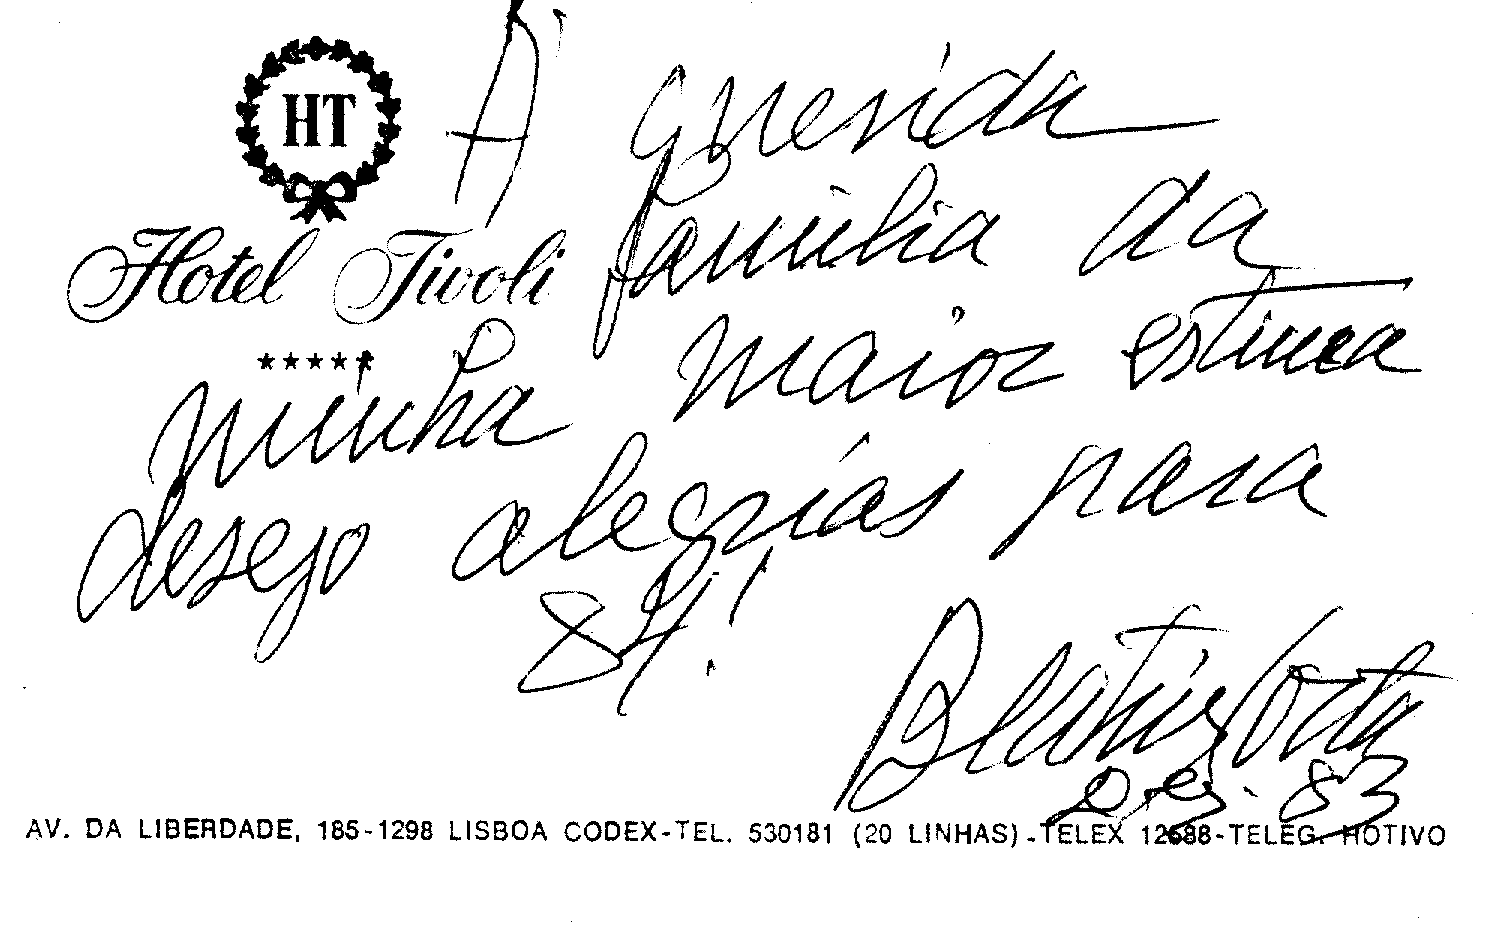 HT
À querida
família da
Hotel Tivoli
minha maior estima
desejo alegrias para
84!
Beatriz Costa
Dez. 83
AV. DA LIBERDADE, 185-1298 LISBOA CODEX-TEL. 530181 (20 LINHAS)-TELEX 12588-TELEG. HOTIVO